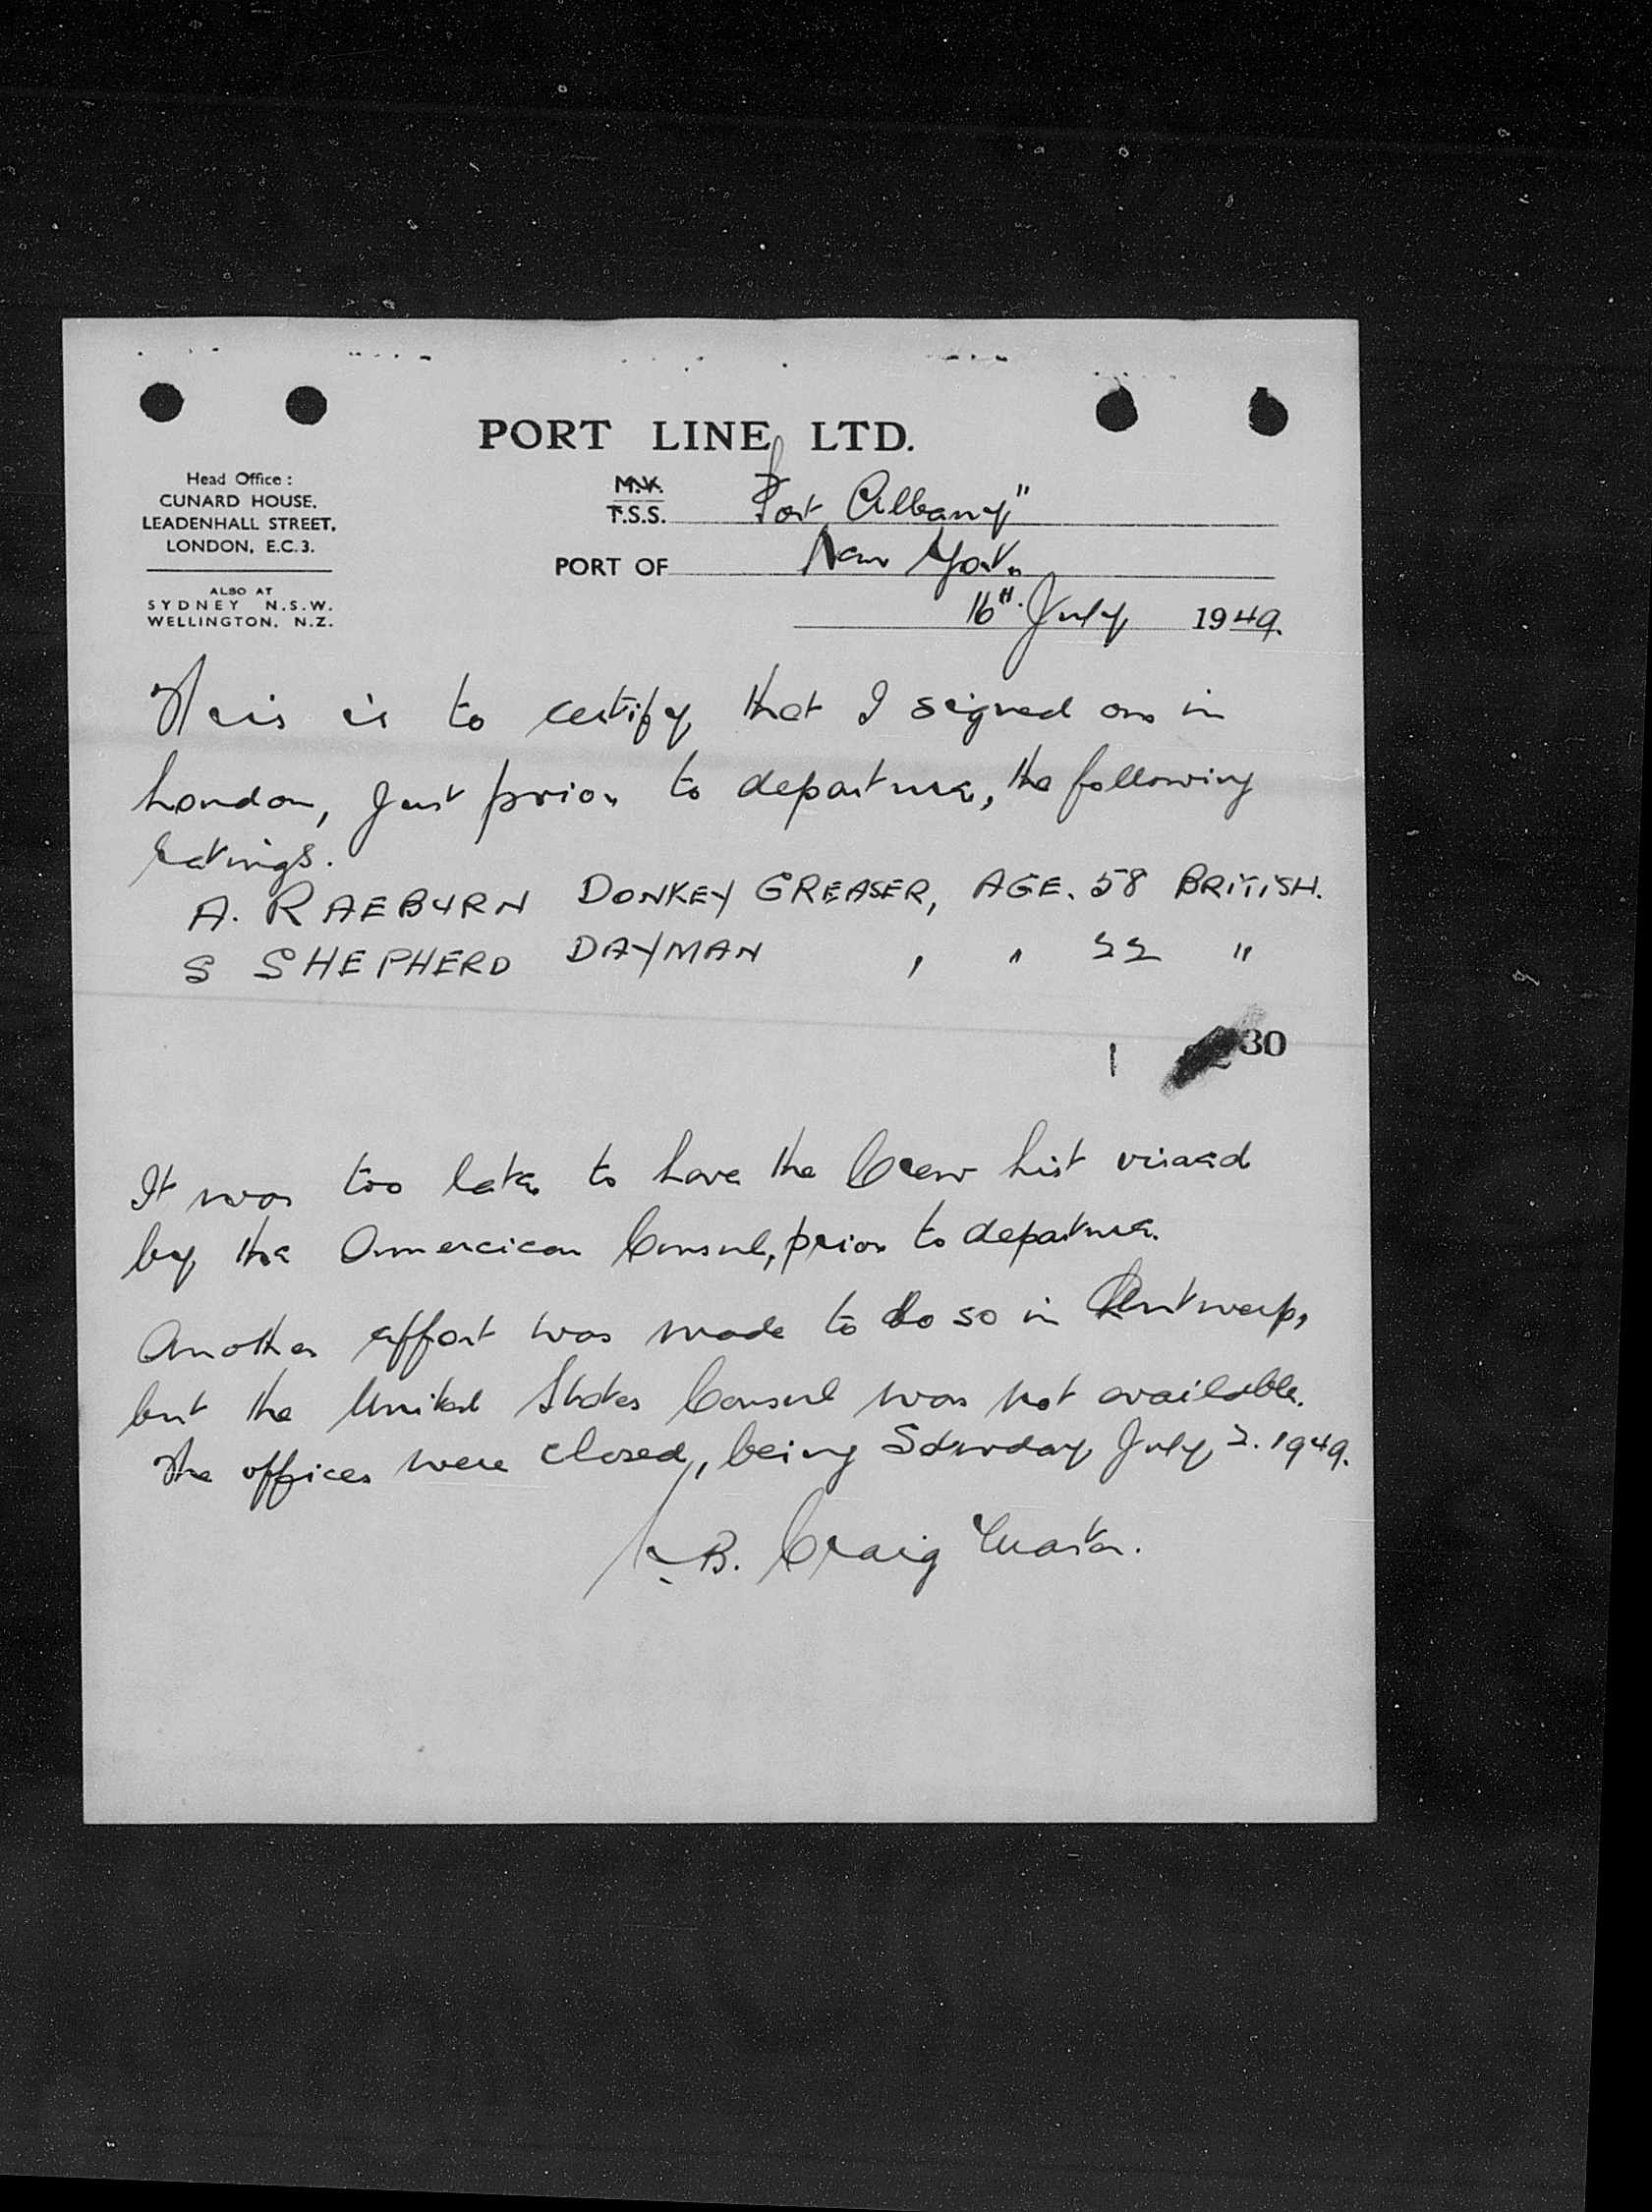 PORT LINE LTD.
Head Office :
CUNARD HOUSE.
LEADENHALL STREET,
LONDON, E.C.3.
ALSO AT
SYDNEY N.S.W.
WELLINGTON. N.Z.
M.V.
T.S.S. "Port Albany"
PORT OF New York.
16th. July 1949.
This is to certify that I signed on in
London, Just prior to departure, the following
ratings.
A. RAEBURN DONKEY GREASER, AGE. 58 BRITISH.
S SHEPHERD DAYMAN , " 22 "
1 30
It was too late to have the Crew List visaed
by the American Consul, prior to departure.
Another effort was made to do so in Antwerp,
but the United States Consul was not available.
The offices were closed, being Saturday July 2. 1949.
B. Craig Master.